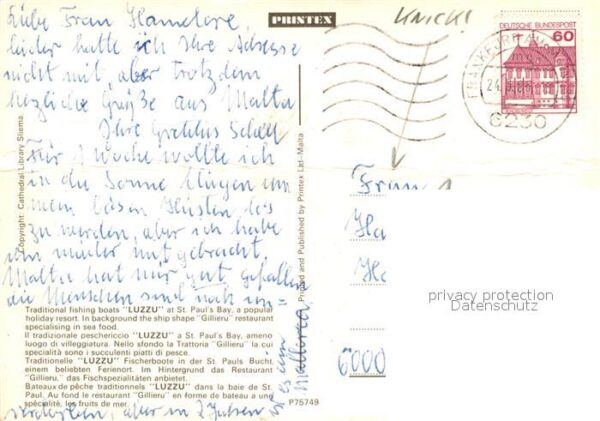 Liebe Frau Hamelore,
leider hatte ich Ihre Adresse
nicht mit, aber trotzdem
herzliche Grüße aus Malta
Ihre
Für 1 Woche wollte ich
in die Sonne fliegen um
mein bösen Husten los
zu werden, aber ich habe
ihn wieder mit gebracht.
Malta hat mir gut gefallen
die Menschen sind noch un=
verdorben, aber in 2 Jahren
ist es ein
Mallorca
Copyright: Cathedral Library Sliema.
Traditional fishing boats "LUZZU" at St. Paul's Bay, a popular
holiday resort. In background the ship shape "Gillieru" restaurant
specialising in sea food.
Il tradizionale peschericcio "LUZZU" a St. Paul's Bay, ameno
luogo di villeggiatura. Nello sfondo la Trattoria "Gillieru" la cui
specialità sono i succulenti piatti di pesce.
Traditionelle "LUZZU" Fischerboote in der St. Pauls Bucht,
einem beliebten Ferienort. Im Hintergrund das Restaurant
"Gillieru", das Fischspezialitäten anbietet.
Bateaux de pêche traditionnels "LUZZU" dans la baie de St.
Paul. Au fond le restaurant "Gillieru" en forme de bateau a une
spécialité, les fruits de mer.
PRINTEX
Printed and Published by Printex Ltd-Malta
P75749
KNICK!
DEUTSCHE BUNDESPOST
60
FRANKFURT AM
6230
Frau
Ha
6000
privacy protection
Datenschutz